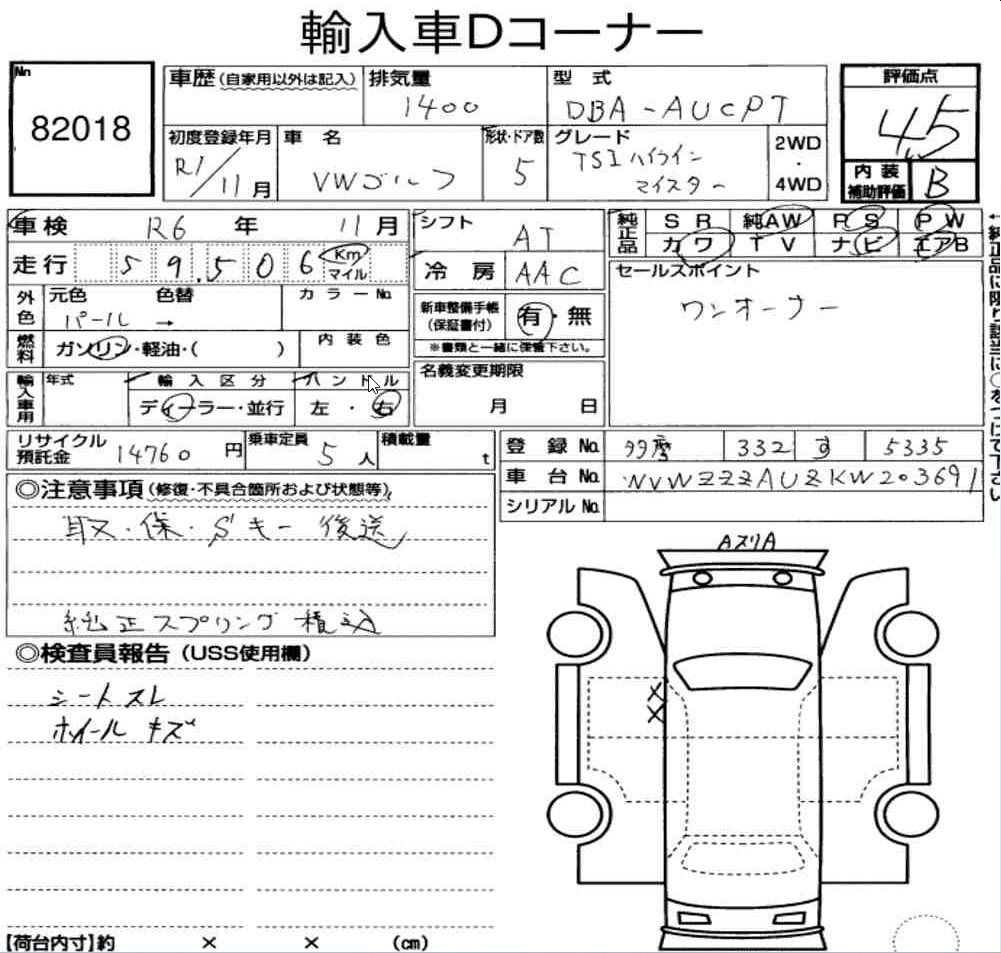 輸入車Dコーナー
No
82018
車歴(自家用以外は記入)
排気量
1400
型 式
DBA-AUCPT
評価点
4.5
内装
補助評価
B
初度登録年月
R1/11月
車 名
VWゴルフ
形状・ドア数
5
グレード
TSIハイライン
マイスター
2WD
・
4WD
車検 R6 年 11月
シフト
AT
純正品
SR 純AW PS PW
カワ TV ナビ エアB
走行 59,506 Km
マイル
冷 房 AAC
セールスポイント
ワンオーナー
外色
元色 色替 カラーNo.
パール →
新車整備手帳
(保証書付)
有・無
※書類と一緒に保管下さい。
燃料
ガソリン・軽油・( )
内装色
名義変更期限
月 日
輸入車用
年式
輸入区分
ハンドル
ディーラー・並行
左・右
リサイクル
預託金
14760円
乗車定員
5人
積載量
t
登 録 No. 多摩 332 す 5335
車 台 No. WVWZZZAUZKW203691
シリアル No.
◎注意事項(修復・不具合箇所および状態等)
取・保・Sキー 後送
純正スプリング 積込
◎検査員報告(USS使用欄)
シートスレ
ホイール キズ
AスリA
××
【荷台内寸】約 × × (cm)
↑純正品に限り該当に○をつけて下さい